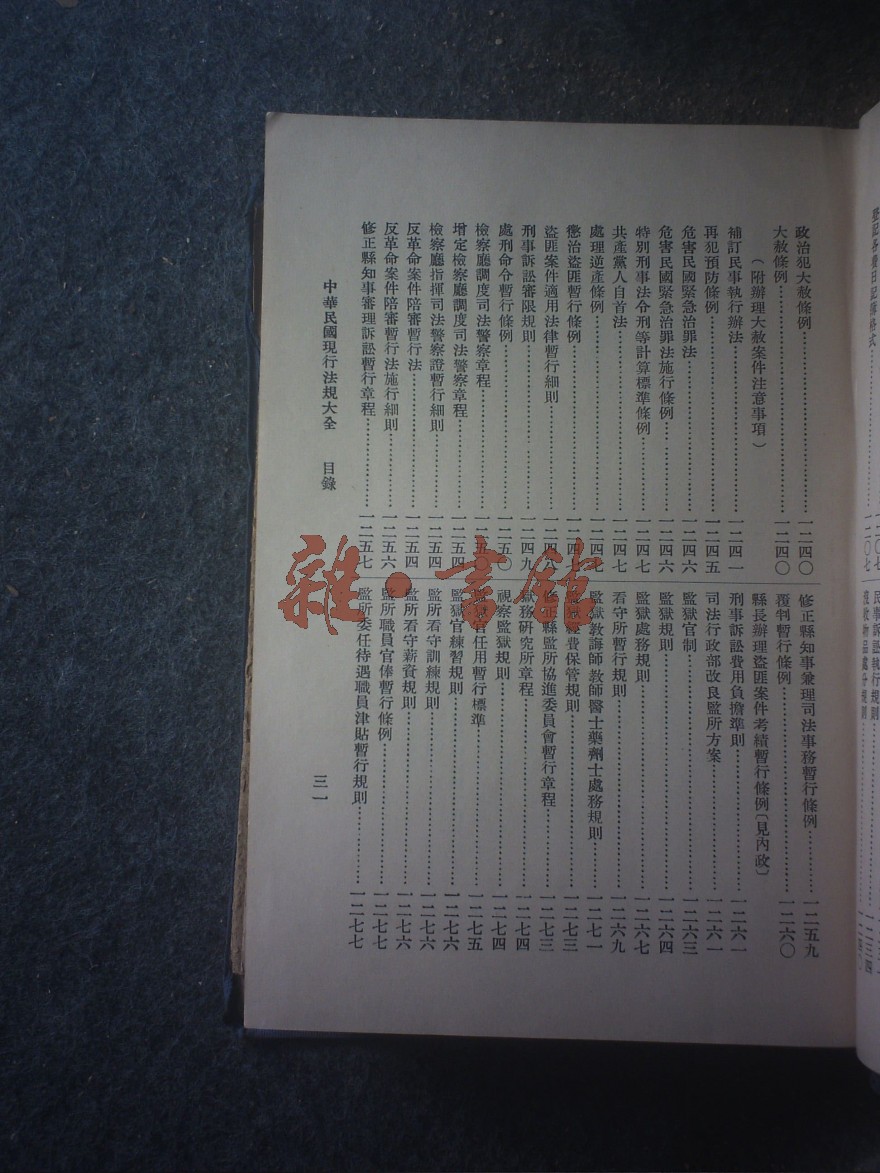 政治犯大赦條例……一二四〇
大赦條例……一二四〇
（附辦理大赦案件注意事項）
補訂民事執行辦法……一二四一
再犯預防條例……一二四五
危害民國緊急治罪法……一二四六
危害民國緊急治罪法施行條例……一二四六
特別刑事法令刑等計算標準條例……一二四七
共產黨人自首法……一二四七
處理逆產條例……一二四
懲治盜匪暫行條例……一二四
盜匪案件適用法律暫行細則……一二四八
刑事訴訟審限規則……一二四九
處刑命令暫行條例……一二五〇
檢察廳調度司法警察章程……一二五〇
增定檢察廳調度司法警察章程……一二五四
檢察廳指揮司法警察證暫行細則……一二五四
反革命案件陪審暫行法……一二五四
反革命案件陪審暫行法施行細則……一二五六
修正縣知事審理訴訟暫行章程……一二五七
修正縣知事兼理司法事務暫行條例……一二五九
覆判暫行條例……一二六〇
縣長辦理盜匪案件考績暫行條例〔見內政〕
刑事訴訟費用負擔準則……一二六一
司法行政部改良監所方案……一二六一
監獄官制……一二六三
監獄規則……一二六四
監獄處務規則……一二六七
看守所暫行規則……一二六九
監獄教誨師教師醫士藥劑士處務規則……一二七一
監獄經費保管規則……一二七三
修正縣監所協進委員會暫行章程……一二七三
獄務研究所章程……一二七四
視察監獄規則……一二七四
監獄官任用暫行標準……一二七五
監獄官練習規則……一二七六
監所看守訓練規則……一二七六
監所看守薪資規則……一二七六
監所職員官俸暫行條例……一二七七
監所委任待遇職員津貼暫行規則……一二七七
中華民國現行法規大全 目錄
三一
雜·書館
民事訴訟執行規則